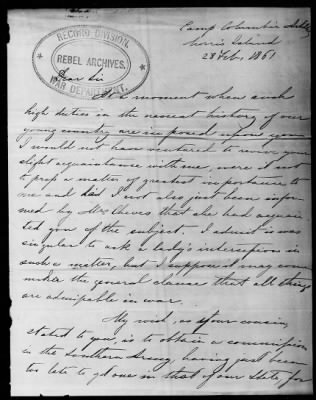 Camp Columbia
Morris Island
28 Feb, 1861
RECORD DIVISION
REBEL ARCHIVES.
WAR DEPARTMENT.
Dear Sir
At a moment when such
high duties in the nascent history of our
young country are imposed upon you
I would not have ventured to renew your
slight acquaintance with me, were it not
to press a matter of greatest importance to
me and did I not also just been infor
med by Mrs Cheves that she had acquain
ted you of the subject. I admit it was
singular to ask a lady's interception in
such a matter, but I suppose it may come
under the general clause that all things
are admissable in war.
My wish, as your cousin
stated to you, is to obtain a commission
in the Southern Army, having just been
too late to get one in that of our State, for